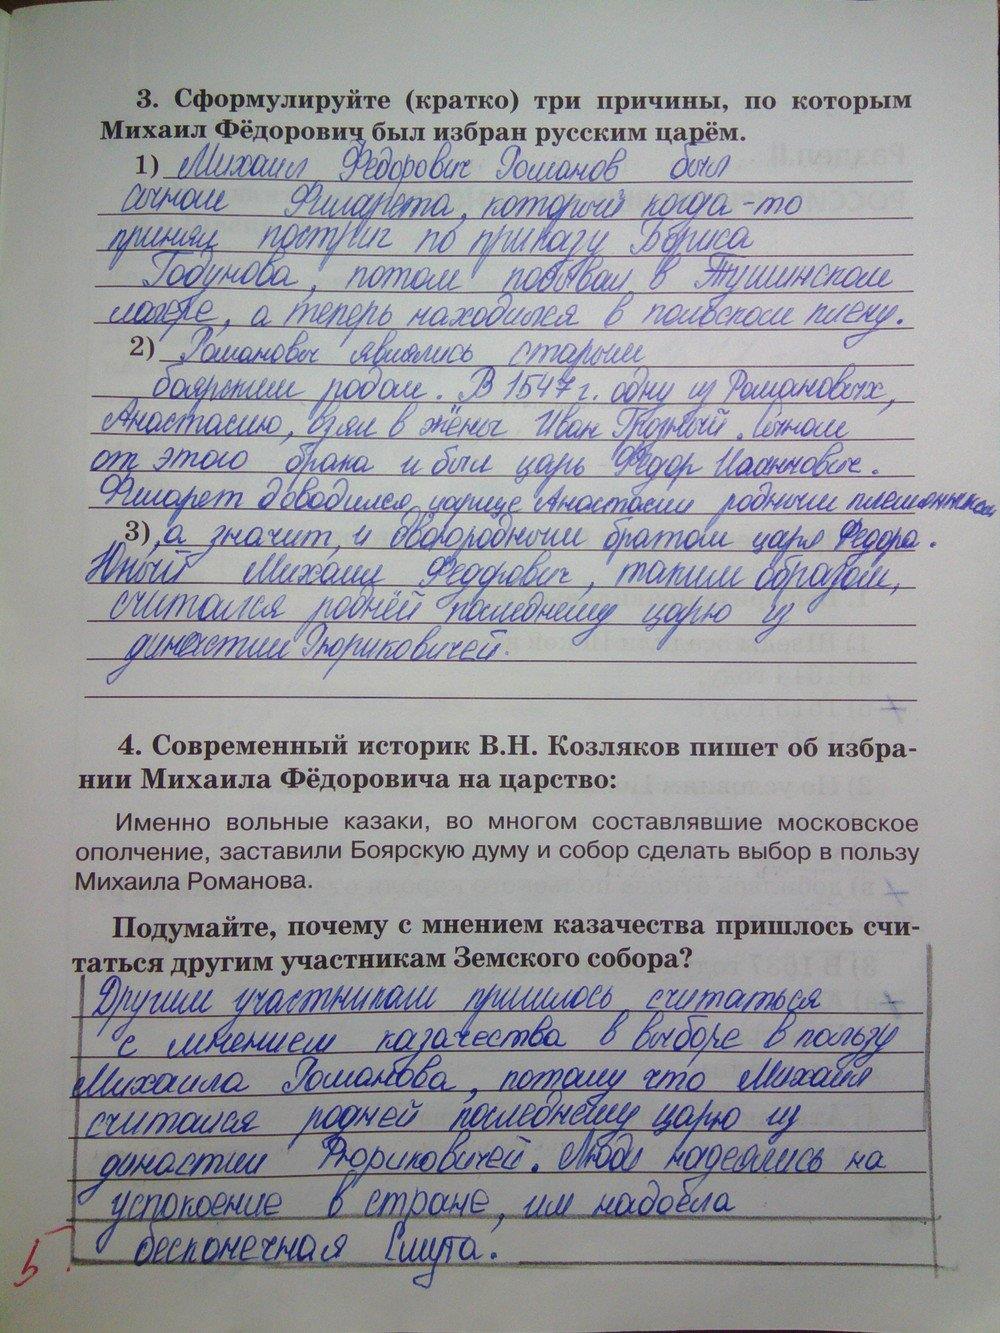 3. Сформулируйте (кратко) три причины, по которым
Михаил Фёдорович был избран русским царём.
1) Михаил Федорович Романов был
сыном Филарета, который когда-то
принял постриг по приказу Бориса
Годунова, потом побывал в Тушинском
лагере, а теперь находился в польском плену.
2) Романовы являлись старым
боярским родом. В 1547 г. одну из Романовых,
Анастасию, взял в жёны Иван Грозный. Сыном
от этого брака и был царь Федор Иоаннович.
Филарет доводился царице Анастасии родным племянником
3) , а значит, и двоюродным братом царя Федора.
Юный Михаил Федорович, таким образом,
считался роднёй последнему царю из
династии Рюриковичей.
4. Современный историк В.Н. Козляков пишет об избра-
нии Михаила Фёдоровича на царство:
Именно вольные казаки, во многом составлявшие московское
ополчение, заставили Боярскую думу и собор сделать выбор в пользу
Михаила Романова.
Подумайте, почему с мнением казачества пришлось счи-
таться другим участникам Земского собора?
Другим участникам пришлось считаться
с мнением казачества в выборе в пользу
Михаила Романова, потому что Михаил
считался родней последнему царю из
династии Рюриковичей. Люди надеялись на
успокоение в стране, им надоела
бесконечная Смута.
5